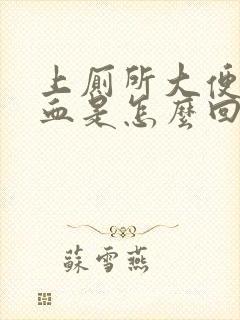 上厠所大便
血是怎麽回
蘇雪燕